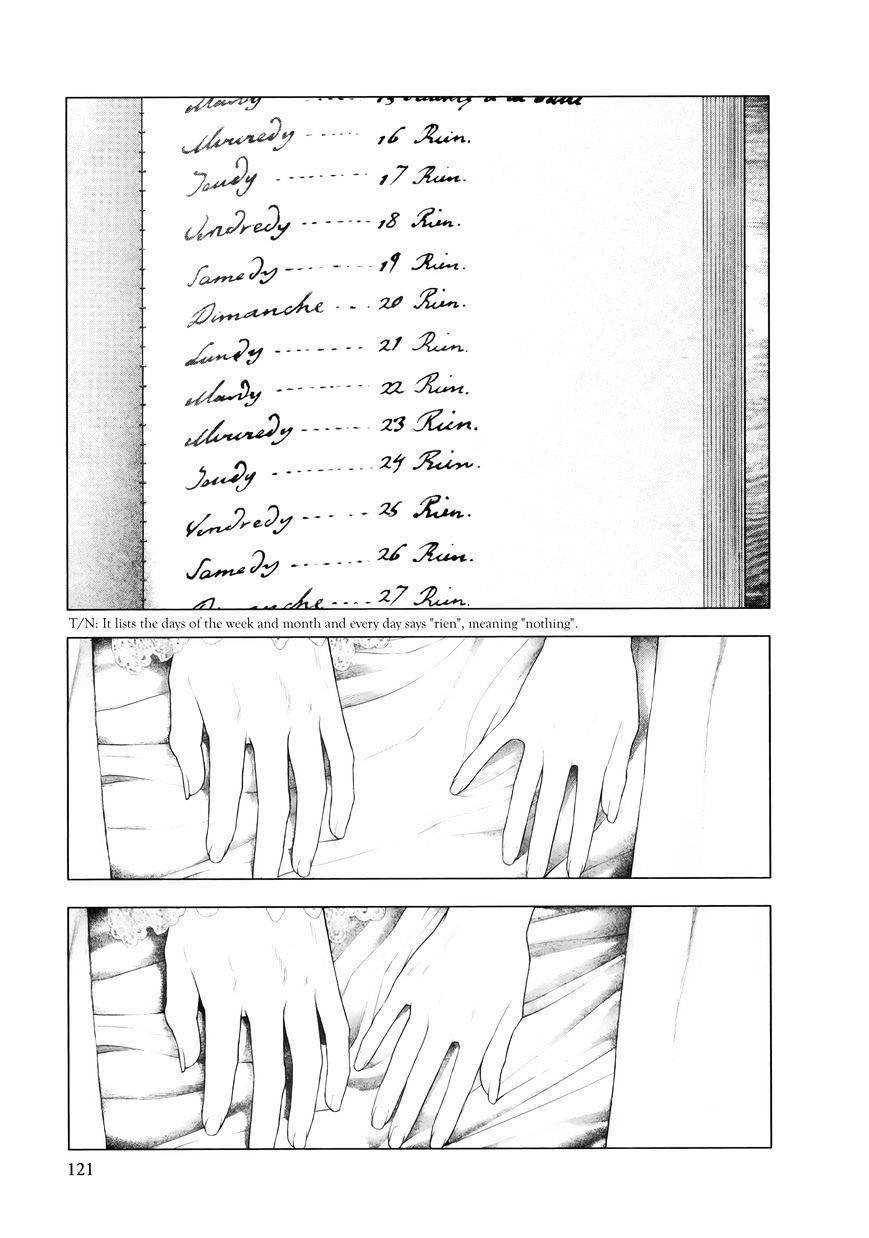 Mercredy ------ 16 Rien.
Jeudy --------- 17 Rien.
Vendredy ------- 18 Rien.
Samedy --------- 19 Rien.
Dimanche --- 20 Rien.
Lundy -------- 21 Rien.
Mardy --------- 22 Rien.
Mercredy ------- 23 Rien.
Jeudy --------- 24 Rien.
Vendredy ----- 25 Rien.
Samedy ------- 26 Rien.
Dimanche ---- 27 Rien.
T/N: It lists the days of the week and month and every day says "rien", meaning "nothing".
121